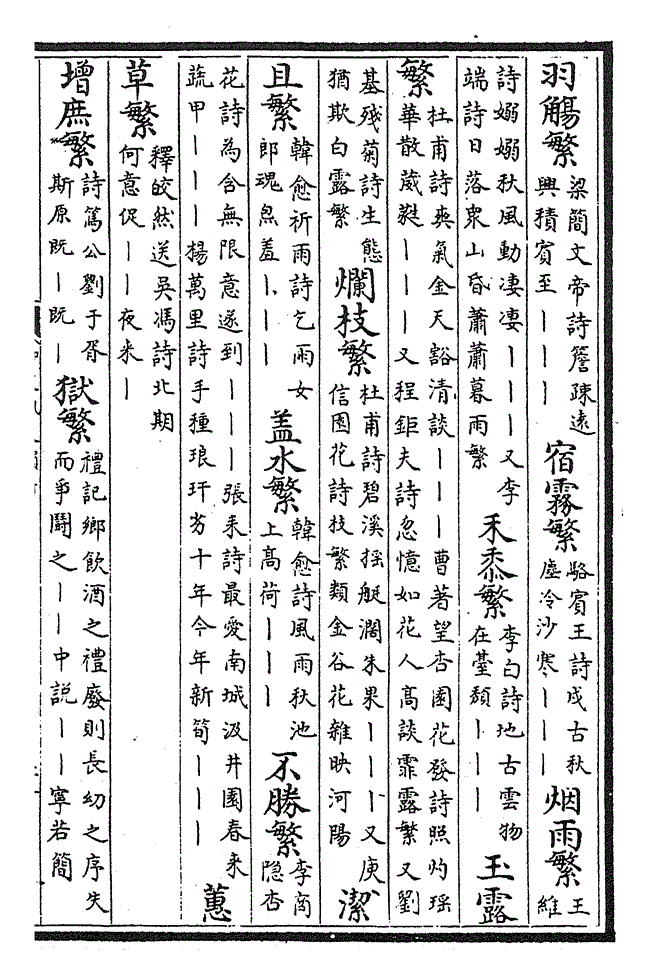 羽觴繁梁簡文帝詩簷疎遠興積賓至｜｜｜宿霧繁駱賓王詩戍古秋塵冷沙寒｜｜｜烟雨繁王維
詩嫋嫋秋風動凄凄｜｜｜又李端詩日落衆山昏蕭蕭暮雨繁禾黍繁李白詩地古雲物在臺頹｜｜｜玉露
繁杜甫詩爽氣金天豁清談｜｜｜曹著望杏園花發詩照灼瑶華散葳蕤｜｜｜又程鉅夫詩忽憶如花人高談霏露繁又劉
基殘菊詩生態猶欺白露繁爛枝繁杜甫詩碧溪揺艇濶朱果｜｜｜又庾信園花詩枝繁類金谷花雜映河陽潔
且繁韓愈祈雨詩乞雨女郎魂炰羞｜｜｜盖水繁韓愈詩風雨秋池上高荷｜｜｜不勝繁李商隐杏
花詩為含無限意遂到｜｜｜張耒詩最愛南城汲井園春来蔬甲｜｜｜楊萬里詩手種琅玕劣十年今年新筍｜｜｜蕙
草繁釋皎然送吳馮詩北期何意促｜｜夜来｜
増庶繁詩篤公劉于胥斯原既｜既｜獄繁禮記鄉飲酒之禮廢則長幼之序失而爭鬪之｜｜中説｜｜寧若簡